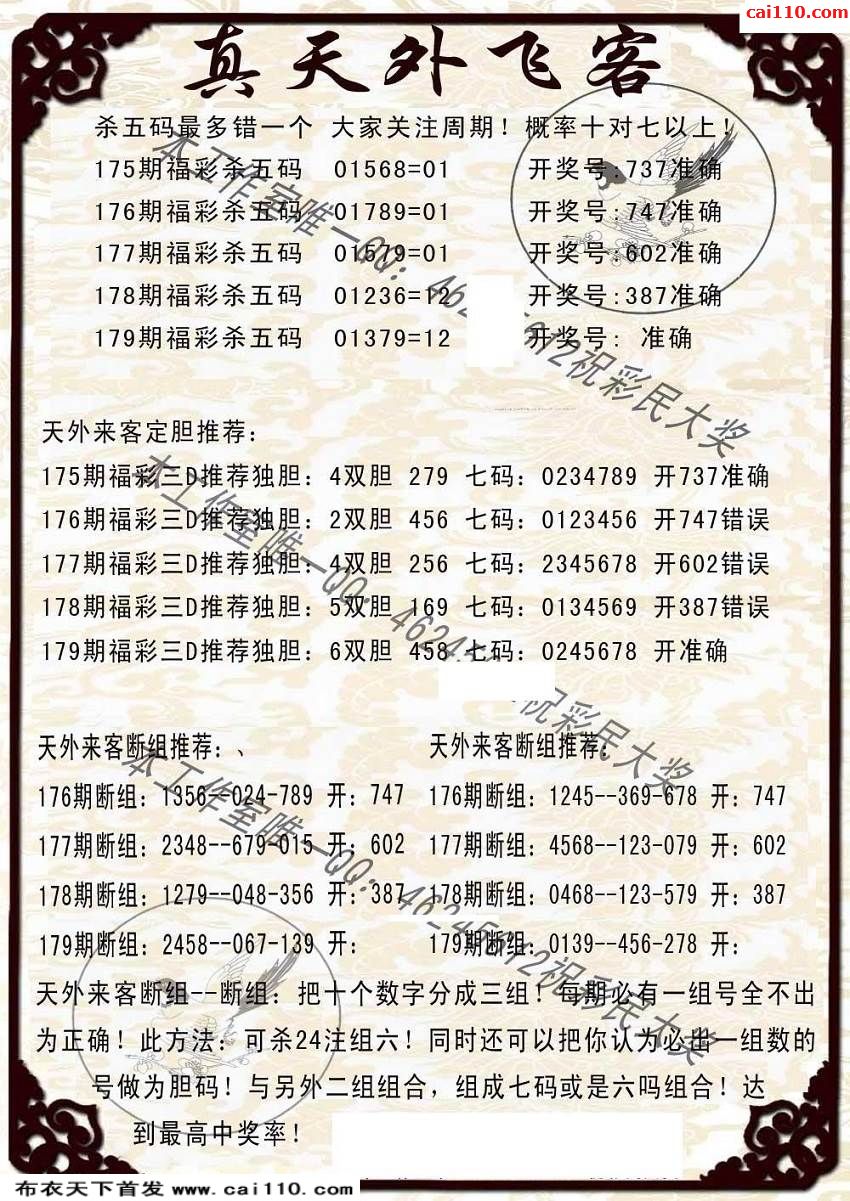 cai110.com
真天外飞客
杀五码最多错一个 大家关注周期！概率十对七以上！
175期福彩杀五码 01568=01 开奖号:737准确
176期福彩杀五码 01789=01 开奖号:747准确
177期福彩杀五码 01579=01 开奖号:602准确
178期福彩杀五码 01236=12 开奖号:387准确
179期福彩杀五码 01379=12 开奖号: 准确
天外来客定胆推荐：
175期福彩三D推荐独胆：4双胆 279 七码：0234789 开737准确
176期福彩三D推荐独胆：2双胆 456 七码：0123456 开747错误
177期福彩三D推荐独胆：4双胆 256 七码：2345678 开602错误
178期福彩三D推荐独胆：5双胆 169 七码：0134569 开387错误
179期福彩三D推荐独胆：6双胆 458 七码：0245678 开准确
天外来客断组推荐：、 天外来客断组推荐：
176期断组：1356--024-789 开：747 176期断组：1245--369-678 开：747
177期断组：2348--679-015 开：602 177期断组：4568--123-079 开：602
178期断组：1279--048-356 开：387 178期断组：0468--123-579 开：387
179期断组：2458--067-139 开： 179期断组：0139--456-278 开：
天外来客断组--断组：把十个数字分成三组！每期必有一组号全不出
为正确！此方法：可杀24注组六！同时还可以把你认为必出一组数的
号做为胆码！与另外二组组合，组成七码或是六吗组合！达
到最高中奖率！
本工作室唯一QQ：祝彩民大奖
本工作室唯一QQ：祝彩民大奖
本工作室唯一QQ：祝彩民大奖
布衣天下首发 www.cai110.com